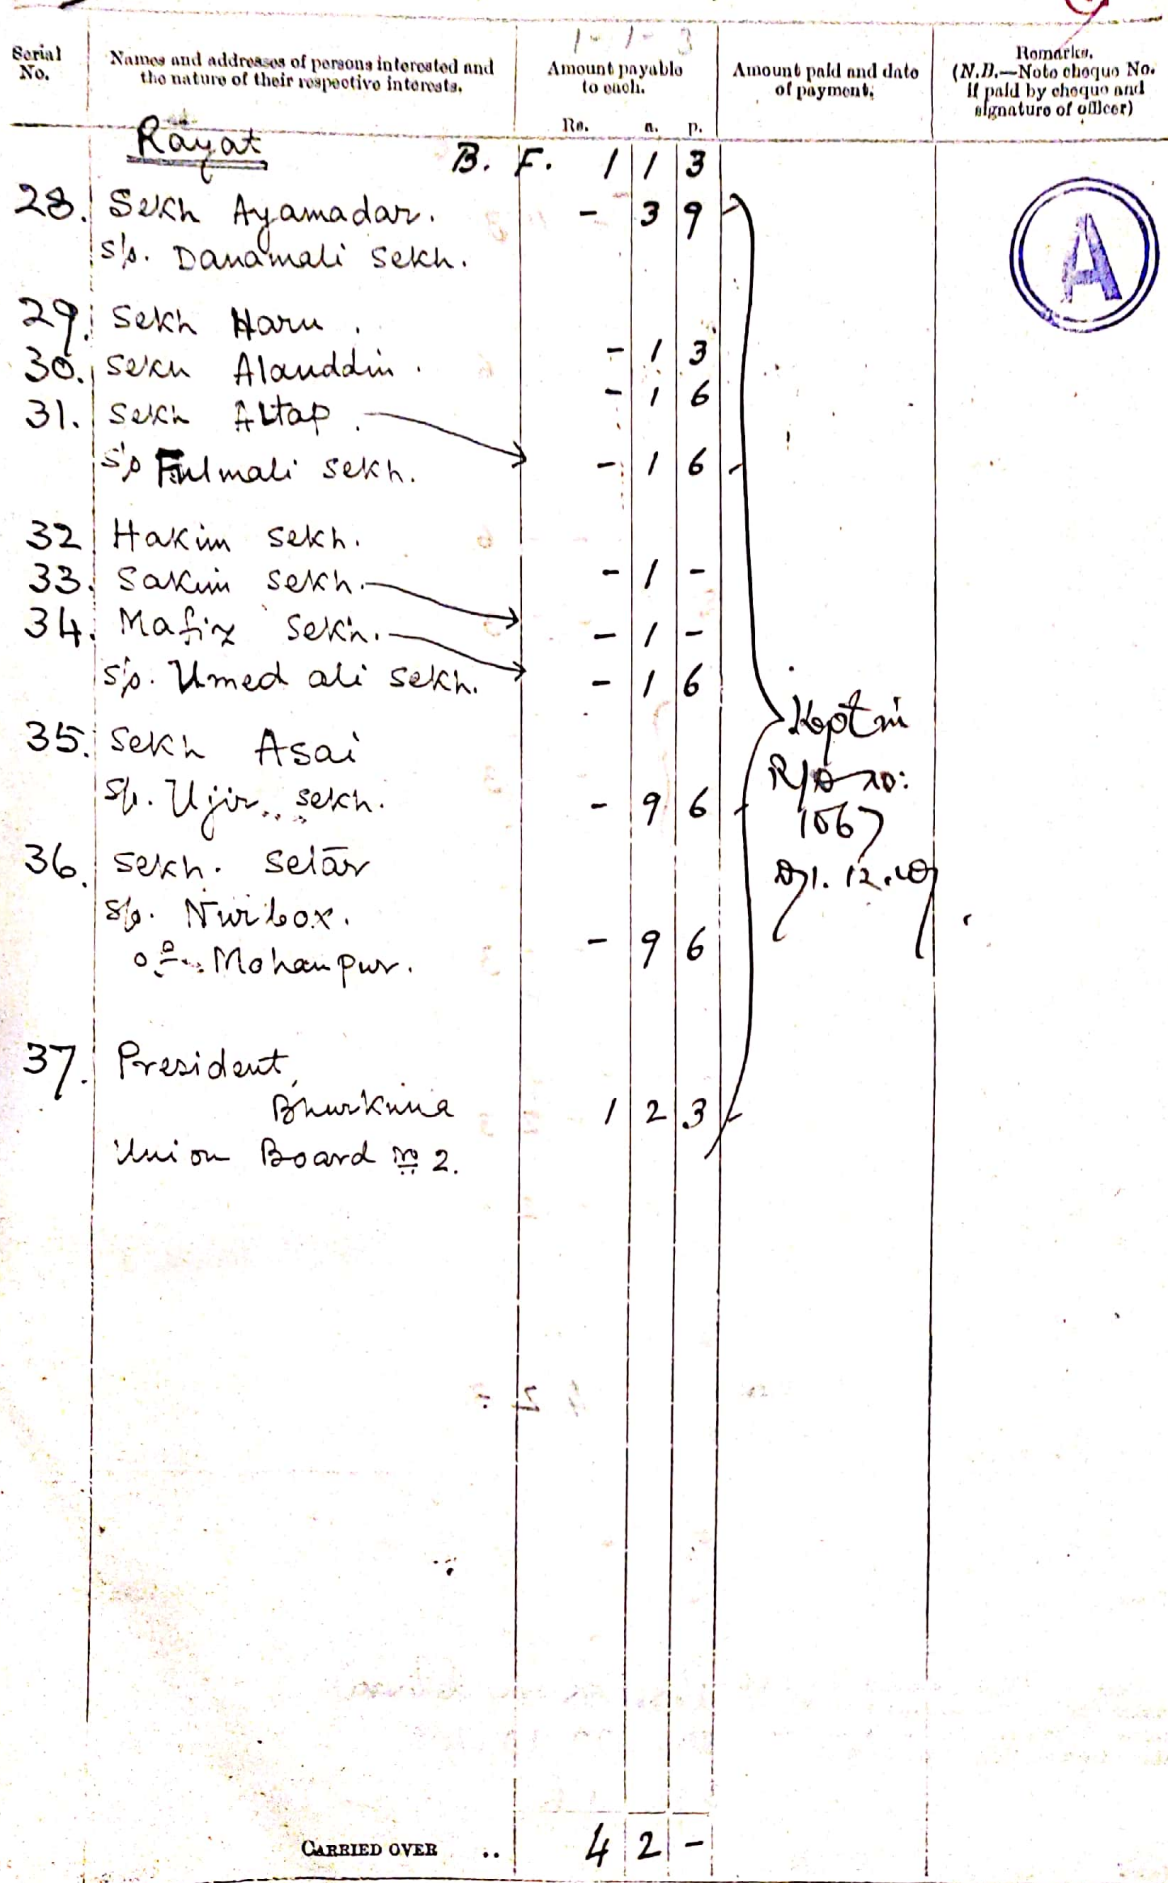 1 - 1 - 3
Serial No. | Names and addresses of persons interested and the nature of their respective interests. | Amount payable to each. | Amount paid and date of payment. | Remarks. (N.B.—Note cheque No. if paid by cheque and signature of officer)
Rs. a. p.
Rayat
B. F. 1 1 3
28. Sekh Ayamadar. - 3 9
s/o. Danamali Sekh.
A
29. Sekh Haru. - 1 3
30. Sekh Alauddin. - 1 6
31. Sekh Altap.
s/o Fulmali Sekh. - 1 6
32 Hakim Sekh. - 1 -
33. Sakim Sekh. - 1 -
34. Mafiz Sekh.
s/o. Umed ali Sekh. - 1 6
35. Sekh Asai
s/o. Ujir Sekh. - 9 6
36. Sekh. Setar
s/o. Nurbox.
of Mohanpur. - 9 6
Kept in
R/D no:
1067
37. President,
Bhurkuna 1 2 3
Union Board No 2.
CARRIED OVER .. 4 2 -